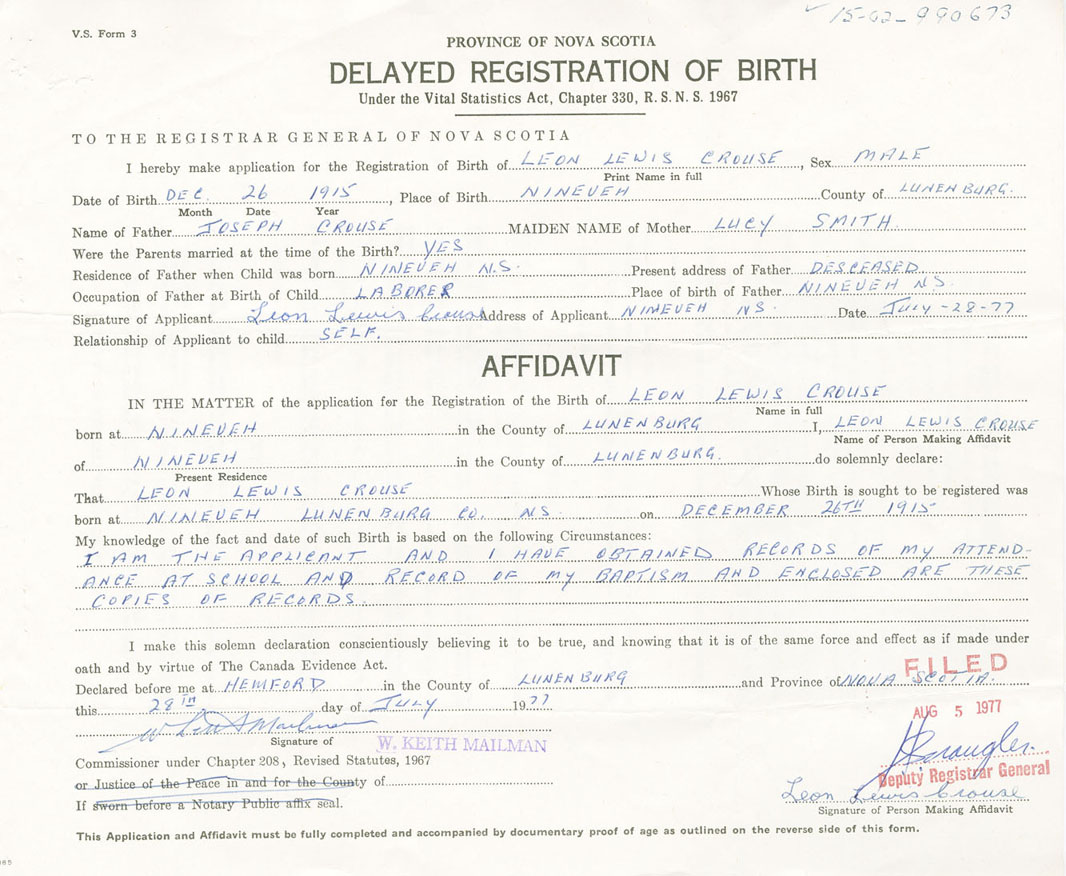 15-02-990673
V.S. Form 3
PROVINCE OF NOVA SCOTIA
DELAYED REGISTRATION OF BIRTH
Under the Vital Statistics Act, Chapter 330, R.S.N.S. 1967
TO THE REGISTRAR GENERAL OF NOVA SCOTIA
I hereby make application for the Registration of Birth of LEON LEWIS CROUSE, Sex MALE
Print Name in full
Date of Birth DEC. 26 1915, Place of Birth NINEVEH County of LUNENBURG.
Month Date Year
Name of Father JOSEPH CROUSE MAIDEN NAME of Mother LUCY SMITH
Were the Parents married at the time of the Birth? YES
Residence of Father when Child was born NINEVEH N.S. Present address of Father DESCEASED
Occupation of Father at Birth of Child LABORER Place of birth of Father NINEVEH NS.
Signature of Applicant Leon Lewis Crouse Address of Applicant NINEVEH NS. Date July-28-77
Relationship of Applicant to child SELF.
AFFIDAVIT
IN THE MATTER of the application for the Registration of the Birth of LEON LEWIS CROUSE
Name in full
born at NINEVEH in the County of LUNENBURG I, LEON LEWIS CROUSE
Name of Person Making Affidavit
of NINEVEH in the County of LUNENBURG. do solemnly declare:
Present Residence
That LEON LEWIS CROUSE Whose Birth is sought to be registered was
born at NINEVEH LUNENBURG CO. NS. on DECEMBER 26TH 1915
My knowledge of the fact and date of such Birth is based on the following Circumstances:
I AM THE APPLICANT AND I HAVE OBTAINED RECORDS OF MY ATTEND-
ANCE AT SCHOOL AND RECORD OF MY BAPTISM AND ENCLOSED ARE THESE
COPIES OF RECORDS.
I make this solemn declaration conscientiously believing it to be true, and knowing that it is of the same force and effect as if made under
oath and by virtue of The Canada Evidence Act.
FILED
Declared before me at HEMFORD in the County of LUNENBURG and Province of NOVA SCOTIA.
this 28TH day of JULY 1977
AUG 5 1977
Signature of W. KEITH MAILMAN
Commissioner under Chapter 208, Revised Statutes, 1967
or Justice of the Peace in and for the County of
Deputy Registrar General
Leon Lewis Crouse
If sworn before a Notary Public affix seal.
Signature of Person Making Affidavit
This Application and Affidavit must be fully completed and accompanied by documentary proof of age as outlined on the reverse side of this form.